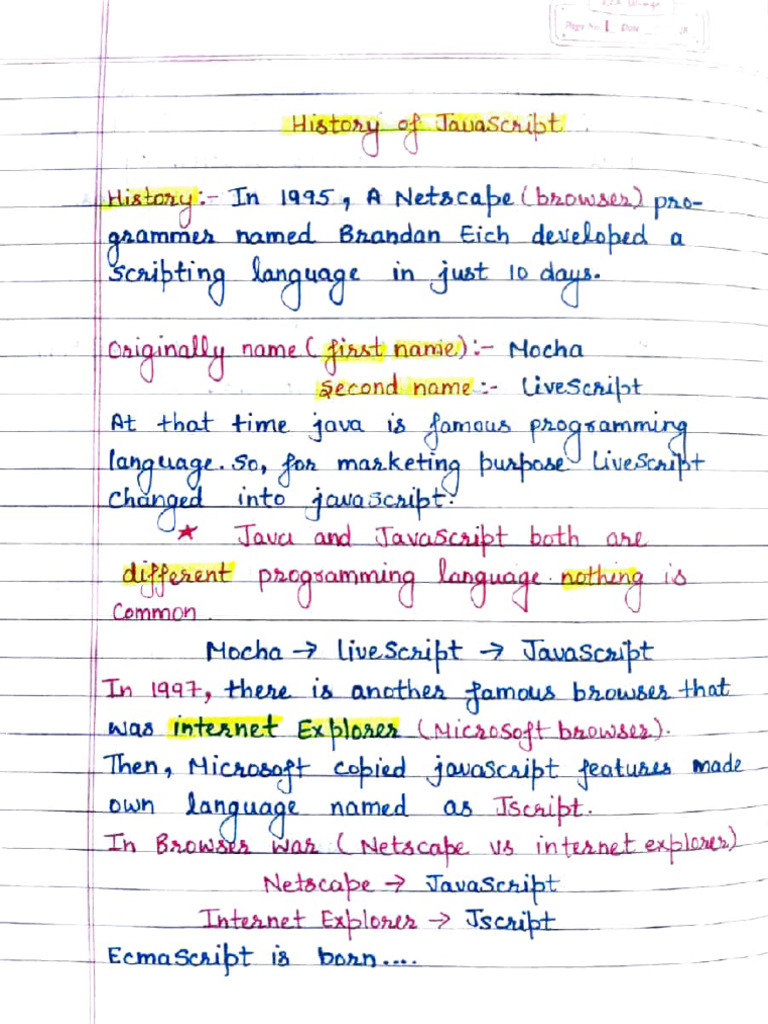 Page No. 1 Date
History of JavaScript
History:- In 1995, A Netscape (browser) pro-
grammer named Brandan Eich developed a
scripting language in just 10 days.
Originally name (first name):- Mocha
Second name:- LiveScript
At that time java is famous programming
language. So, for marketing purpose LiveScript
changed into javascript.
★ Java and JavaScript both are
different programming language. nothing is
common.
Mocha → LiveScript → JavaScript
In 1997, there is another famous browser that
was internet Explorer (Microsoft browser).
Then, Microsoft copied javascript features made
own language named as Jscript.
In Browser war (Netscape vs internet explorer)
Netscape → JavaScript
Internet Explorer → Jscript
EcmaScript is born....